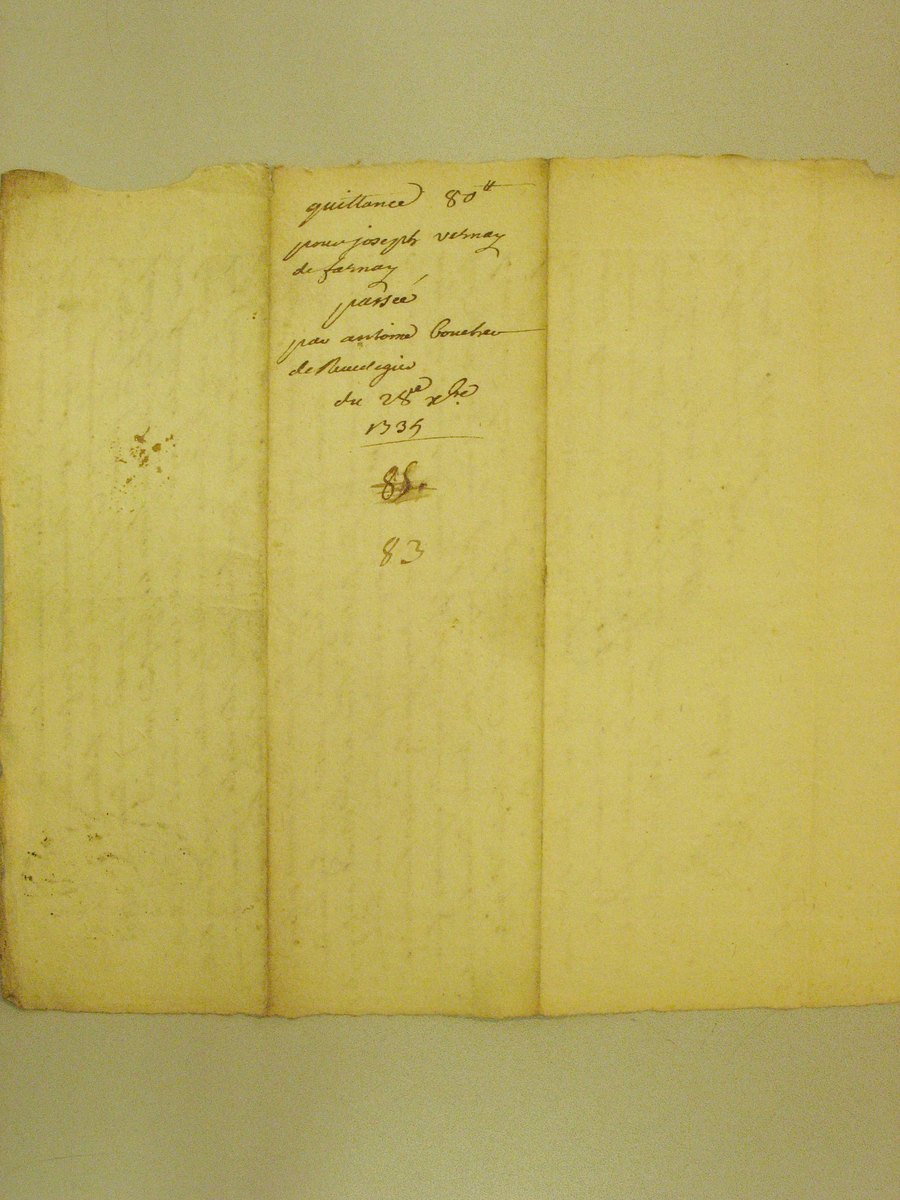 quittance 80#
pour joseph vernay
de farnay
passée
par antoine Boucher
de
du 28e xbre
1735
83